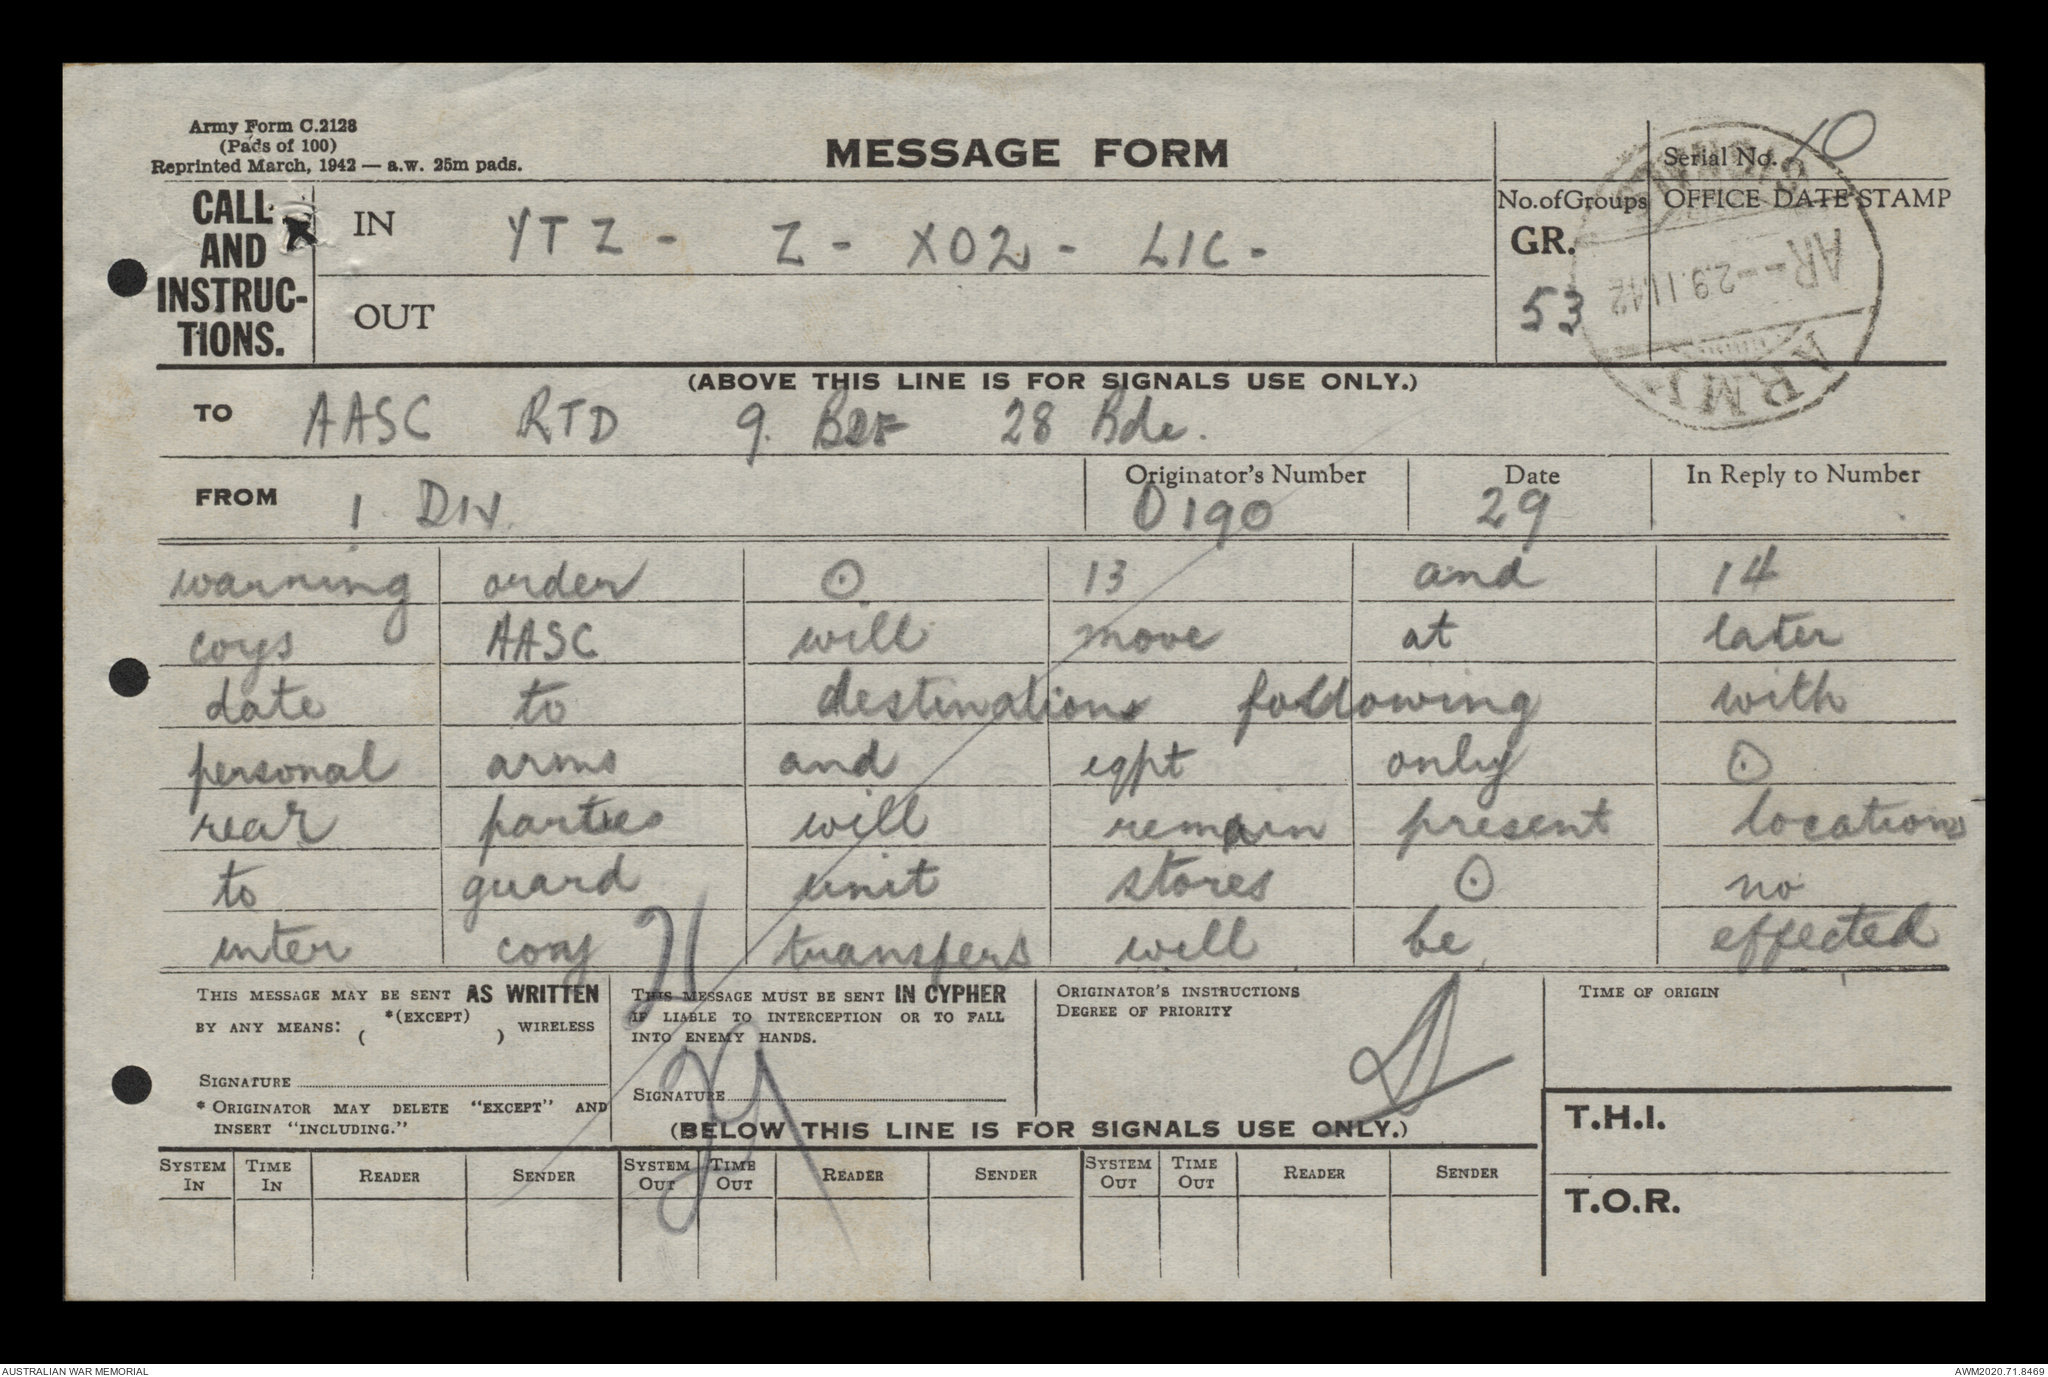 Army Form C.2128
(Pads of 100)
Reprinted March, 1942 — a.w. 25m pads.
MESSAGE FORM
Serial No. 10
CALL AND INSTRUC-TIONS.
IN YTZ - Z - XO2 - LIC -
OUT
No. of Groups
GR.
53
OFFICE DATE STAMP
SIGNALS
AR - - 29.11.42
ARMY
(ABOVE THIS LINE IS FOR SIGNALS USE ONLY.)
TO AASC RTD 9. 28 Bde.
FROM 1. DIV.
Originator's Number
O190
Date
29
In Reply to Number
warning order ⊙ 13 and 14
coys AASC will move at later
date to destinations following with
personal arms and eqpt only ⊙
rear parties will remain present locations
to guard unit stores ⊙ no
inter coy transfers will be effected
21
29
THIS MESSAGE MAY BE SENT AS WRITTEN
BY ANY MEANS: *(EXCEPT) ( ) WIRELESS
SIGNATURE
* ORIGINATOR MAY DELETE "EXCEPT" AND
INSERT "INCLUDING."
THIS MESSAGE MUST BE SENT IN CYPHER
IF LIABLE TO INTERCEPTION OR TO FALL
INTO ENEMY HANDS.
SIGNATURE
ORIGINATOR'S INSTRUCTIONS
DEGREE OF PRIORITY
TIME OF ORIGIN
(BELOW THIS LINE IS FOR SIGNALS USE ONLY.)
T.H.I.
T.O.R.
SYSTEM IN TIME IN READER SENDER SYSTEM OUT TIME OUT READER SENDER SYSTEM OUT TIME OUT READER SENDER
AUSTRALIAN WAR MEMORIAL
AWM2020.71.8469